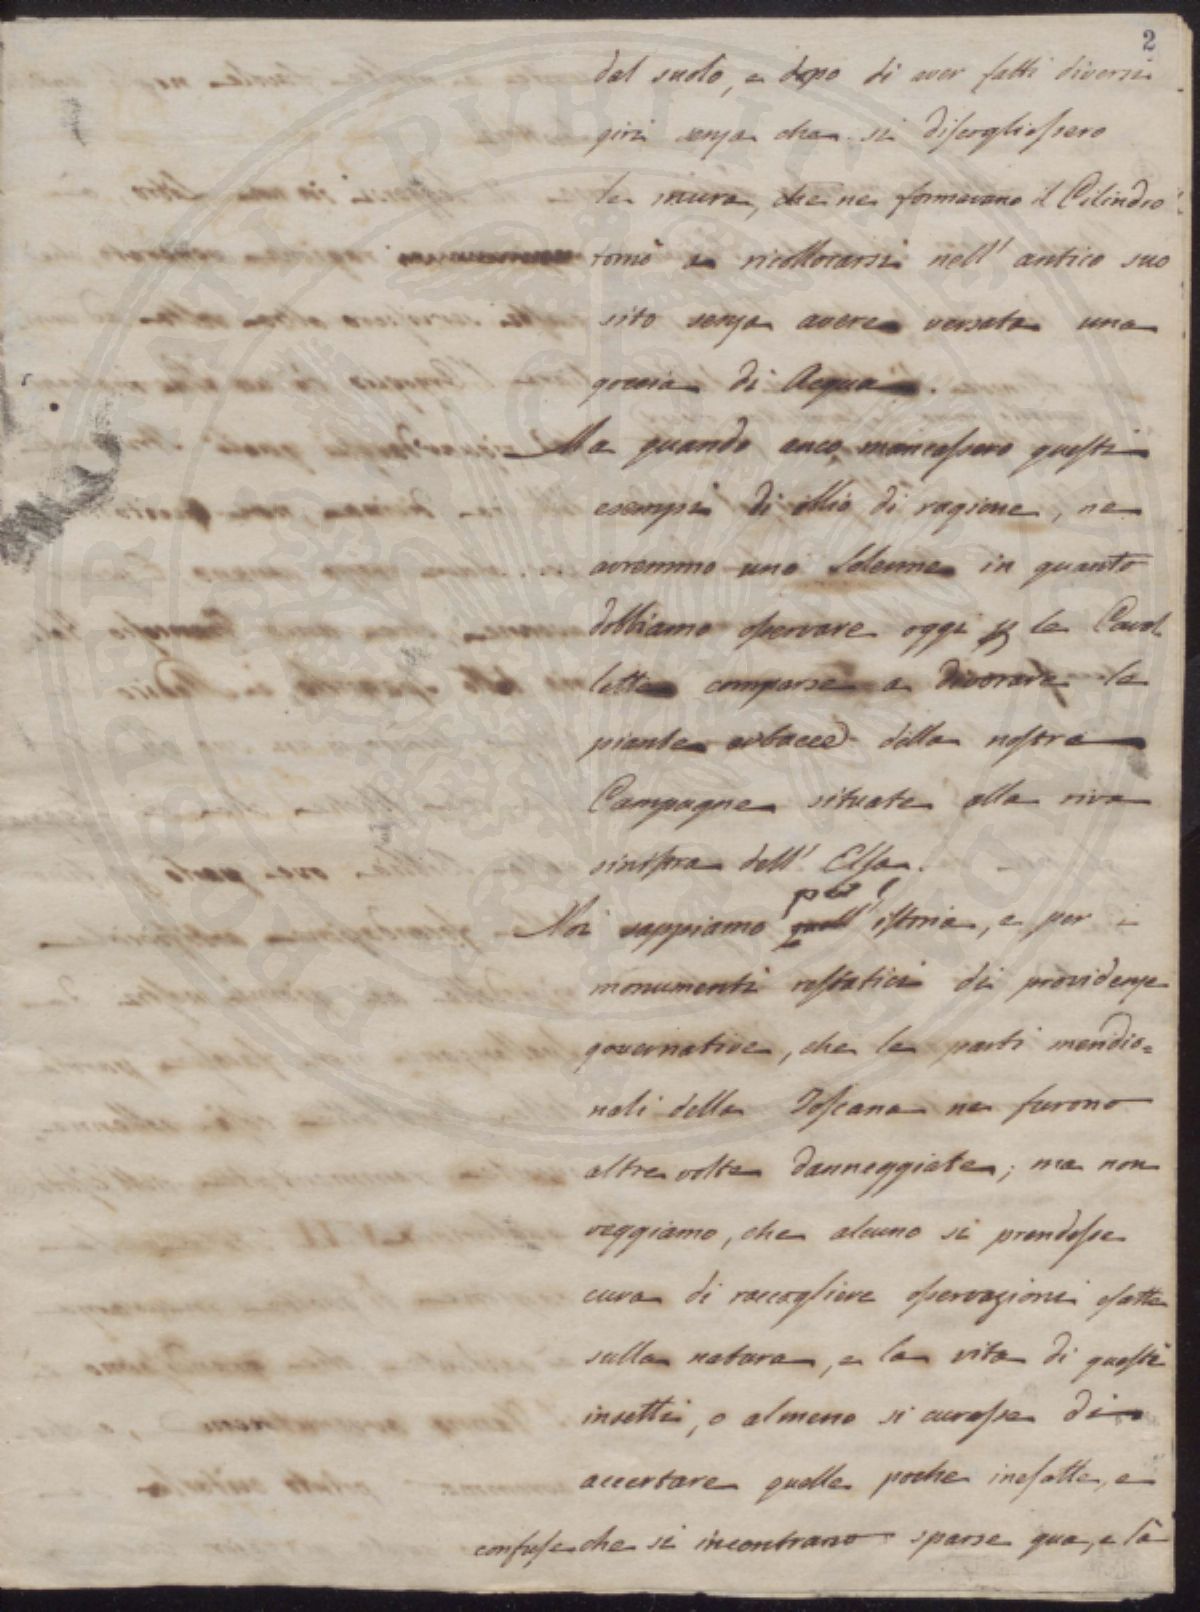 2
dal suolo, e dopo di aver fatti diversi
giri senza che si disciogliessero
le mura, che ne formavano il Cilindro
tornò a ricollocarsi nell' antico suo
sito senza avere versata una
goccia di Acqua.
Ma quando anco mancassero questi
esempi di oblio di ragione, ne
avremmo uno solenne in quanto
dobbiamo osservare oggi p le Caval
lette comparse a divorare le
piante erbacee della nostra
Campagne situate alla riva
sinistra dell' Elsa.
per l'
Noi sappiamo istoria, e per i
monumenti restatici di providenze
governative, che le parti meridio=
nali della Toscana ne furono
altre volte danneggiate; ma non
veggiamo, che alcuno si prendesse
cura di raccogliere osservazioni esatte
sulla natura, e la vita di questi
insetti, o almeno si curasse di
accertare quelle poche inesatte, e
confuse che si incontrano sparse qua, e là